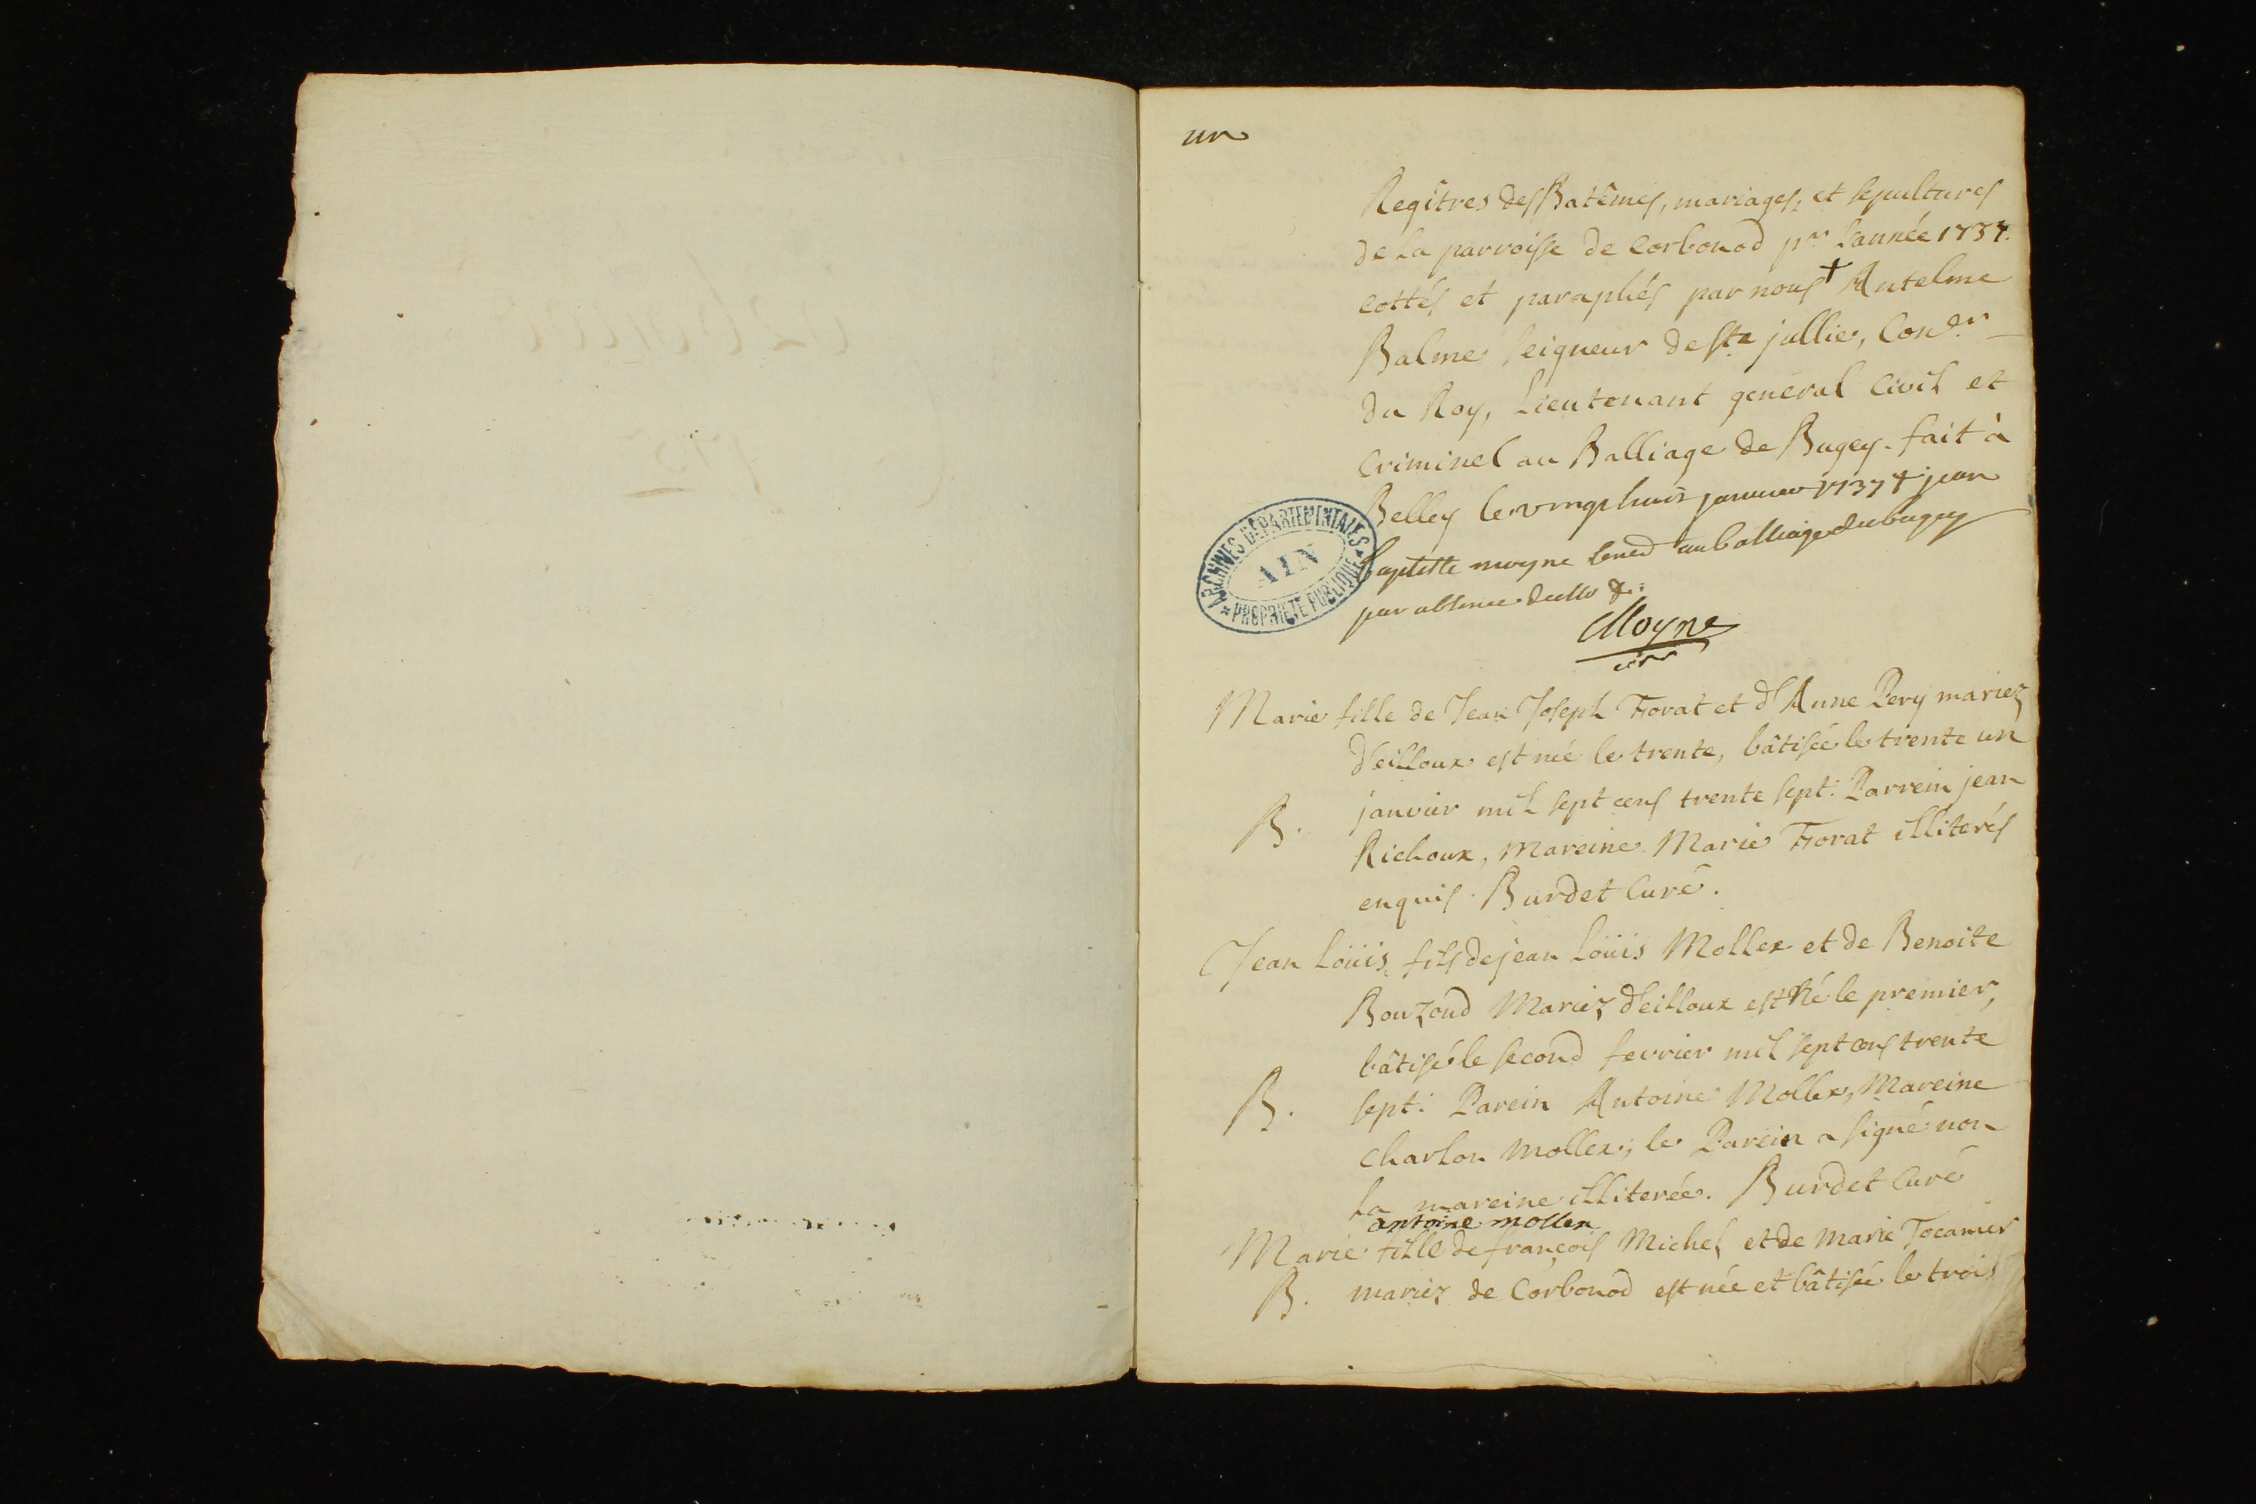 un
Regîtres des Batêmes, mariages, et sepultures
de la parroisse de Corbonod pr. L'année 1737.
cottés et paraphés par nous † Antelme
Balme seigneur de Ste jullie, Coner
du Roy, Lieutenant general Civil et
Criminel au Balliage de Bugey. fait à
Belley le vingt huit janvier 1737 † jean
baptiste moyne au balliage du bugey
par absence
Moyne
ARCHIVES DÉPARTEMENTALES
AIN
PROPRIÉTÉ PUBLIQUE
Marie fille de Jean Joseph Forat et d'Anne Pery mariez
d'eilloux est née le trente, bâtisée le trente un
B. janvier mil sept cens trente sept. Parrein jean
Richoux, Mareine Marie Forat illiterés
enquis. Burdet Curé.
Jean Loüis fils de jean Loüis Mollex et de Benoite
Bouzond Mariez d'eilloux est Né le premier,
bâtisé le second fevrier mil sept cens trente
B. sept. Parein Antoine Mollex, Mareine
Charlon Mollex; le Parein a signé non
La mareine illiterée. Burdet Curé
antoine mollex
Marie fille de françois Michel et de Marie Tocanier
B. mariez de Corbonod est née et bâtisée le trois